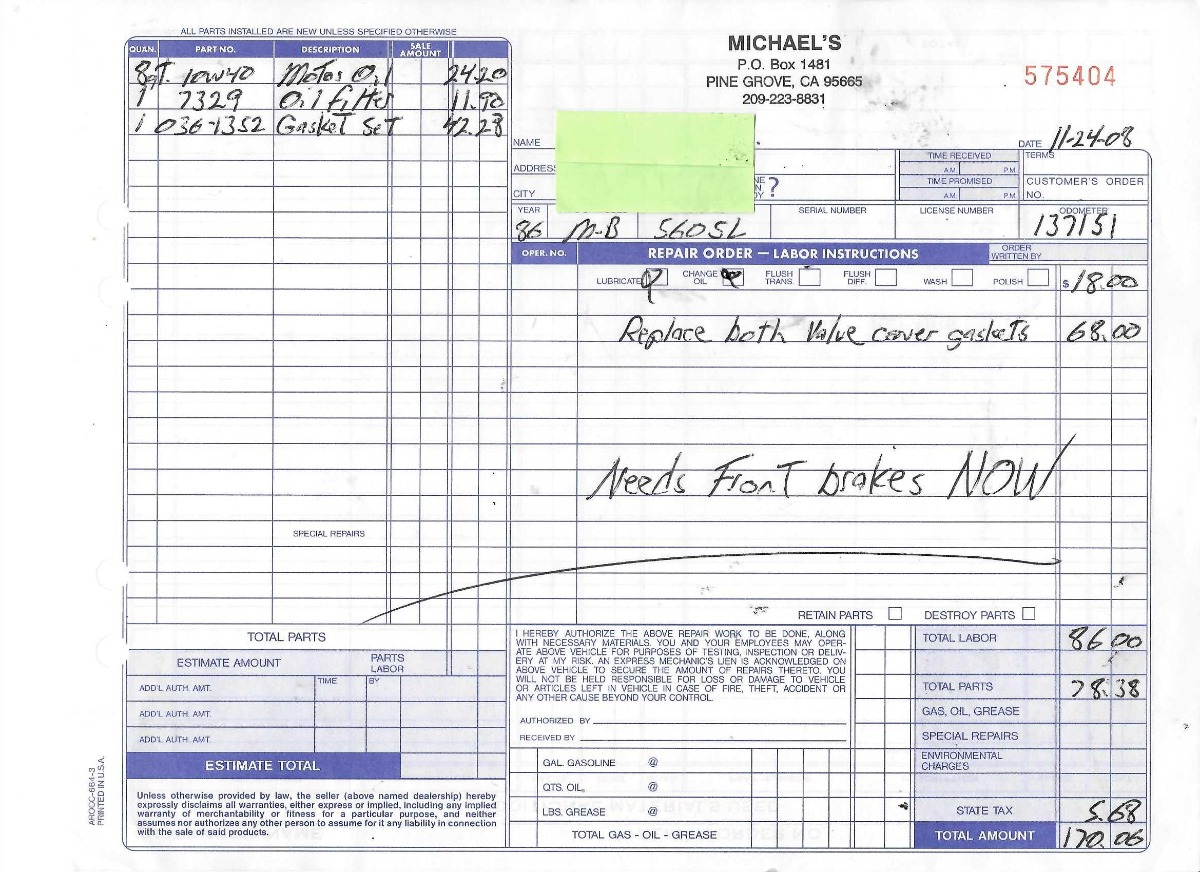 ALL PARTS INSTALLED ARE NEW UNLESS SPECIFIED OTHERWISE
QUAN. PART NO. DESCRIPTION SALE AMOUNT
8qt. 10W40 Motor Oil 24.20
1 7329 Oil filter 11.90
1 036-1352 Gasket Set 42.28
SPECIAL REPAIRS
MICHAEL'S
P.O. Box 1481
PINE GROVE, CA 95665
209-223-8831
575404
NAME DATE 11-24-08
ADDRESS TIME RECEIVED A.M. P.M. TERMS
CITY ? TIME PROMISED A.M. P.M. CUSTOMER'S ORDER NO.
YEAR SERIAL NUMBER LICENSE NUMBER ODOMETER
86 M-B 560SL 137151
OPER. NO. REPAIR ORDER — LABOR INSTRUCTIONS ORDER WRITTEN BY
LUBRICATE CHANGE OIL FLUSH TRANS. FLUSH DIFF. WASH POLISH $ 18.00
Replace both Valve cover gaskets 68.00
Needs Front brakes NOW
RETAIN PARTS DESTROY PARTS
TOTAL PARTS
ESTIMATE AMOUNT PARTS LABOR
ADD'L AUTH. AMT. TIME BY
ADD'L AUTH. AMT.
ADD'L AUTH. AMT.
ESTIMATE TOTAL
Unless otherwise provided by law, the seller (above named dealership) hereby
expressly disclaims all warranties, either express or implied, including any implied
warranty of merchantability or fitness for a particular purpose, and neither
assumes nor authorizes any other person to assume for it any liability in connection
with the sale of said products.
PRINTED IN U.S.A.
I HEREBY AUTHORIZE THE ABOVE REPAIR WORK TO BE DONE, ALONG
WITH NECESSARY MATERIALS. YOU AND YOUR EMPLOYEES MAY OPER-
ATE ABOVE VEHICLE FOR PURPOSES OF TESTING, INSPECTION OR DELIV-
ERY AT MY RISK. AN EXPRESS MECHANIC'S LIEN IS ACKNOWLEDGED ON
ABOVE VEHICLE TO SECURE THE AMOUNT OF REPAIRS THERETO. YOU
WILL NOT BE HELD RESPONSIBLE FOR LOSS OR DAMAGE TO VEHICLE
OR ARTICLES LEFT IN VEHICLE IN CASE OF FIRE, THEFT, ACCIDENT OR
ANY OTHER CAUSE BEYOND YOUR CONTROL.
AUTHORIZED BY
RECEIVED BY
GAL. GASOLINE @
QTS. OIL @
LBS. GREASE @
TOTAL GAS - OIL - GREASE
TOTAL LABOR 86 00
TOTAL PARTS 78.38
GAS, OIL, GREASE
SPECIAL REPAIRS
ENVIRONMENTAL CHARGES
STATE TAX 5.68
TOTAL AMOUNT 170.06